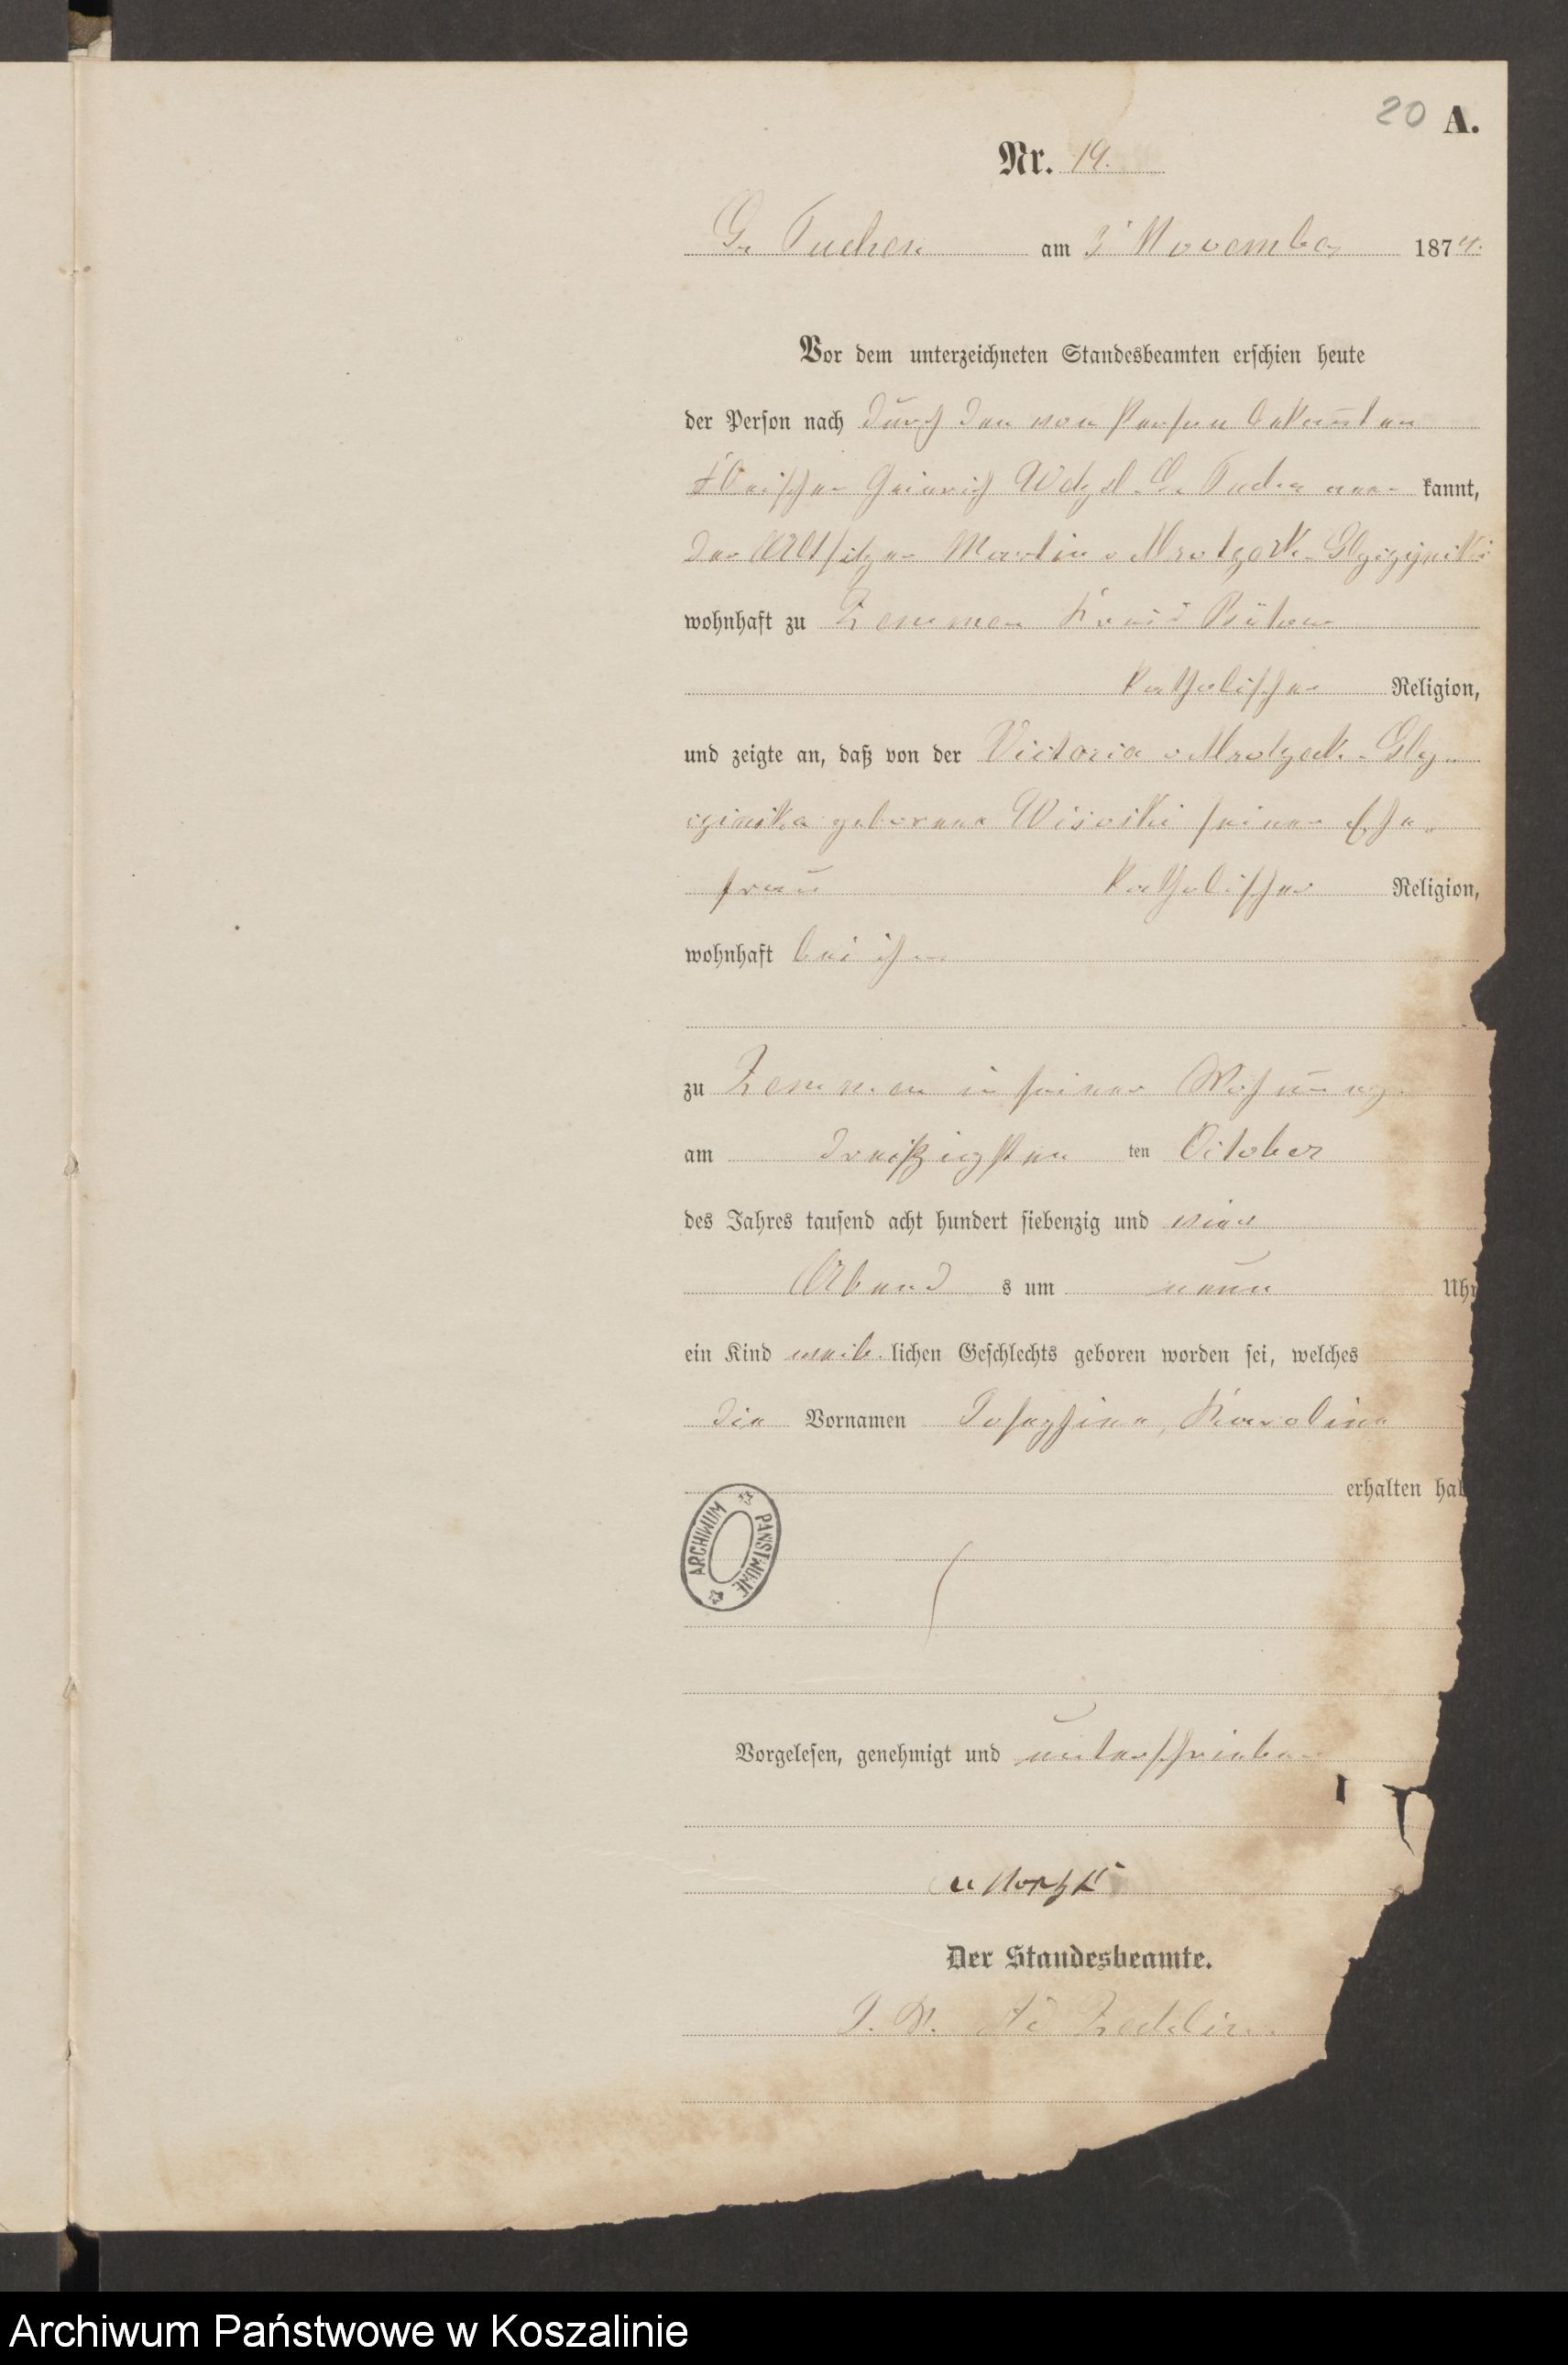 20 A.
Nr. 19.
Gr Tuchen am 3 November 1874.
Vor dem unterzeichneten Standesbeamten erschien heute
der Person nach durch den von Person bekannten
Heinrich Gr Tuchen aner- kannt,
der Altsitzer Martin v Mrotzek-
wohnhaft zu Zemmen Kreis Bütow
katholischer Religion,
und zeigte an, daß von der Victoria v Mrotzek-Gly-
czinska geborene Wisoski seiner Ehe-
frau katholischer Religion,
wohnhaft bei ihm
zu Zemmen in seiner Wohnung
am dreißigsten ten October
des Jahres tausend acht hundert siebenzig und vier
Abend s um neun Uhr
ein Kind weib- lichen Geschlechts geboren worden sei, welches
die Vornamen Josephine, Karoline
erhalten hab
ARCHIWUM PAŃSTWOWE
Vorgelesen, genehmigt und unterschrieben
Der Standesbeamte.
Archiwum Państwowe w Koszalinie